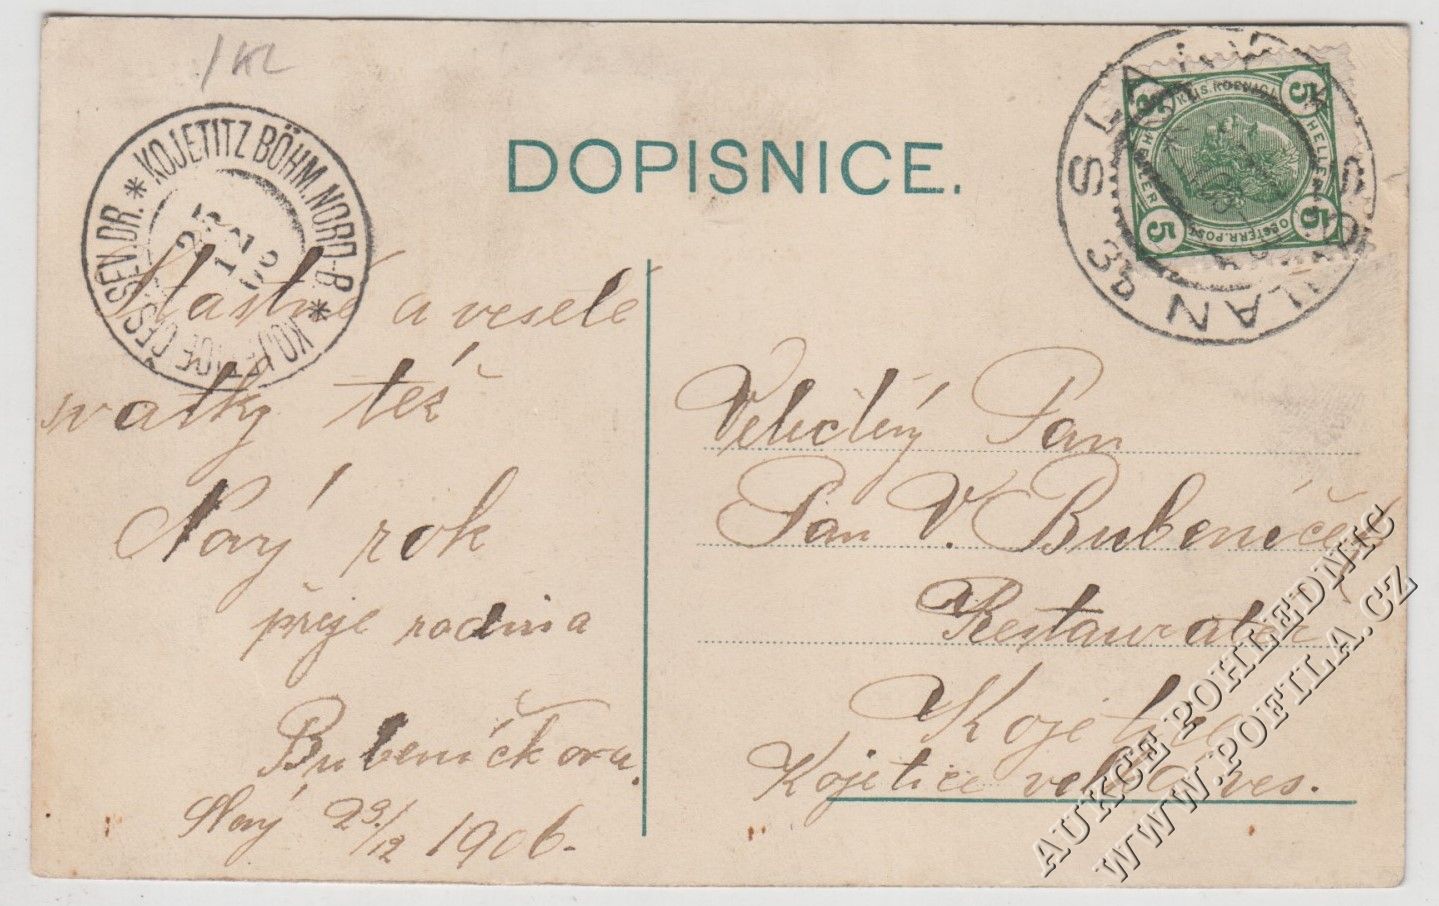 /KL
DOPISNICE.
* KOJETITZ BÖHM. NORD-B. *
KOJETICE ČES. SEV. DR.
06
SLANÝ
SCHLAN
3d
5 5
HELLER HELLER
5 5
Šťastné a veselé
svátky též
Nový rok
přeje rodina
Bubeníčkova.
Slaný 23/12 1906.
Velectěný Pan
Pan V. Bubeníček
Restauratér
Kojetice
Kojetice velká ves.
AUKCE POHLEDNIC
WWW.POFILA.CZ